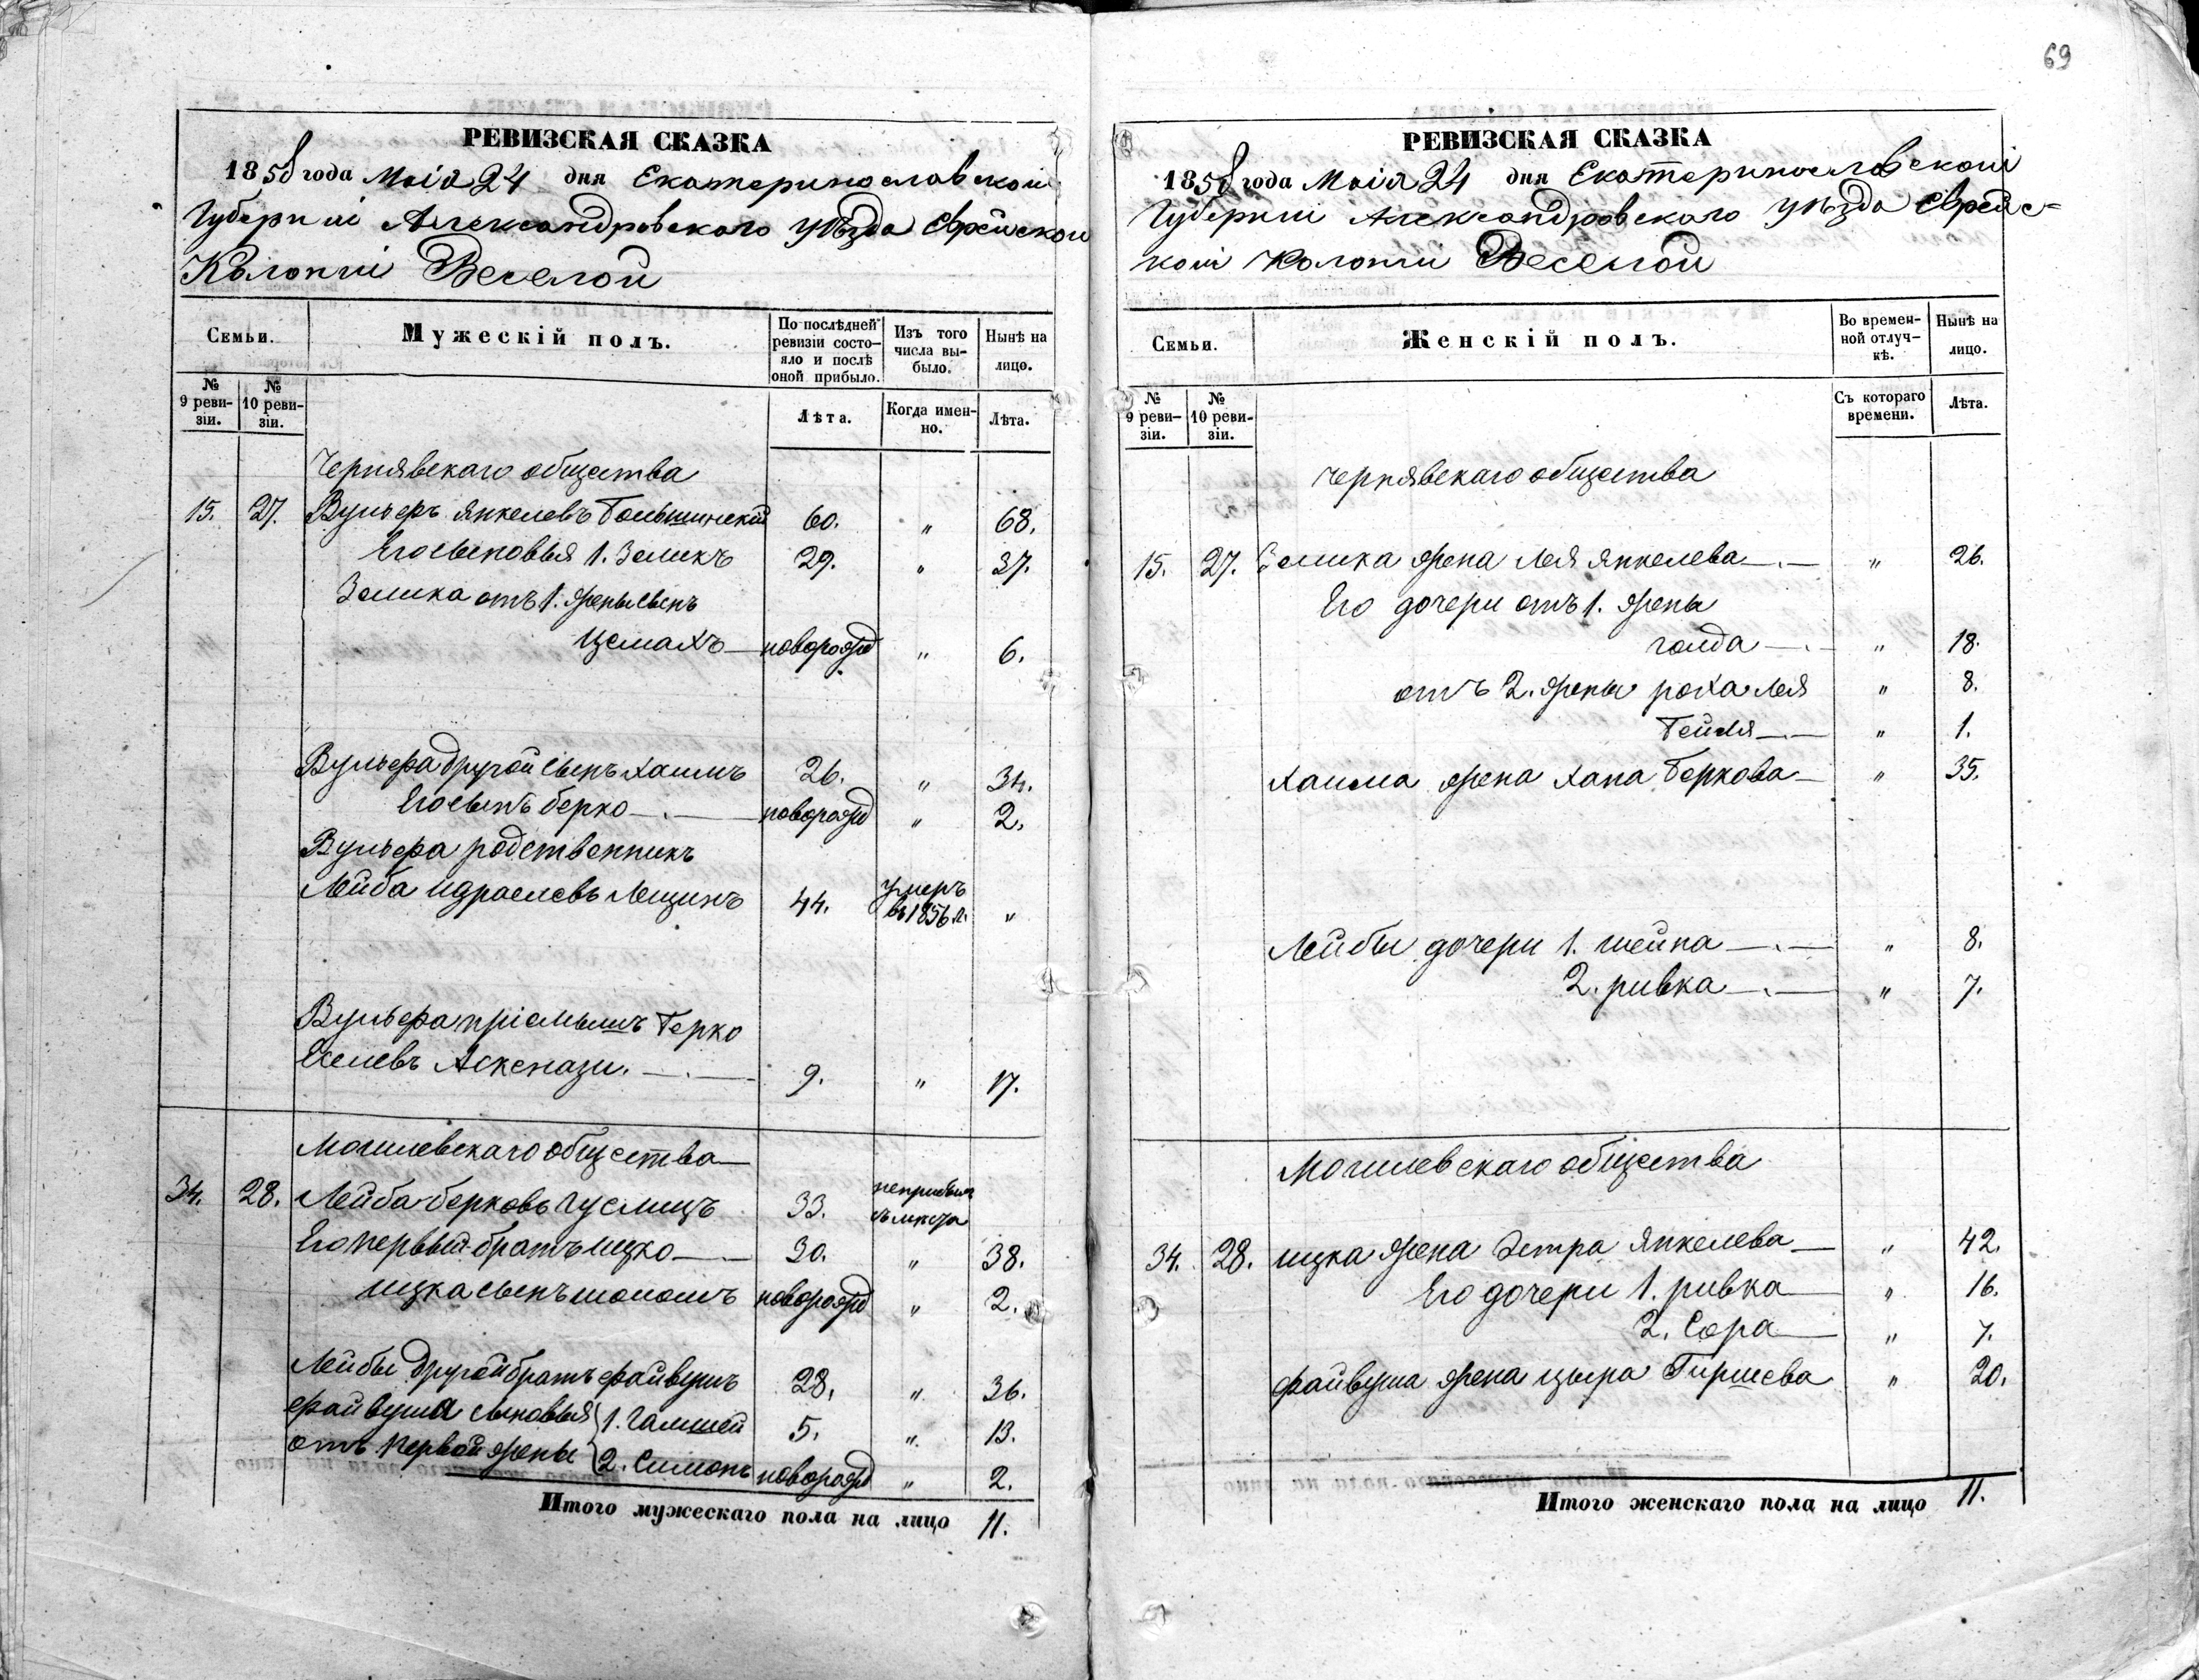 69
РЕВИЗСКАЯ СКАЗКА
1858 года Маія 24 дня Екатеринославской
Губерніи Александровскаго уѣзда Еврейской
Колоніи Веселой
Семьи.
Мужескій полъ.
По послѣдней ревизіи состояло и послѣ оной прибыло.
Изъ того числа выбыло.
Нынѣ на лицо.
№ 9 ревизіи.
№ 10 ревизіи.
Лѣта.
Когда именно.
Лѣта.
Чернявскаго общества
15. 27. Вульфъ Янкелевъ 60. " 68.
Его сыновья 1. Зеликъ 29. " 37.
Зелика отъ 1. жены сынъ
Цемахъ — новорожд " 6.
Вульфа другой сынъ Хаимъ 26. " 34.
Его сынъ Берко — новорожд " 2.
Вульфа родственникъ
Лейба Израелевъ Лещинъ 44. умеръ въ 1856 г. "
Вульфа пріемышъ Берко
Аскенази. — 9. " 17.
Могилевскаго общества
34. 28. Лейба Берковъ Гуслицъ 33.
Его первый братъ Ицко — 30. " 38.
Ицка сынъ Шоломъ новорожд " 2.
Лейбы другой братъ Файвушъ 28. " 36.
Файвуша сыновья 1. 5. " 13.
отъ первой жены 2. Симонъ новорожд " 2.
Итого мужескаго пола на лицо 11.
РЕВИЗСКАЯ СКАЗКА
1858 года Маія 24 дня Екатеринославской
Губерніи Александровскаго уѣзда Еврейс-
кой Колоніи Веселой
Семьи.
Женскій полъ.
Во временной отлучкѣ.
Нынѣ на лицо.
№ 9 ревизіи.
№ 10 ревизіи.
Съ котораго времени.
Лѣта.
Чернявскаго общества
15. 27. Зелика жена Лея Янкелева — " 26.
Его дочери отъ 1. жены
Голда — " 18.
отъ 2. жены Роха Лея " 8.
Бейля — " 1.
Хаима жена Хана Беркова — " 35.
Лейбы дочери 1. Шейна — " 8.
2. Ривка — " 7.
Могилевскаго общества
34. 28. Ицка жена Эстра Янкелева — " 42.
Его дочери 1. Ривка " 16.
2. Сора — " 7.
Файвуша жена Цыра Гиршева " 20.
Итого женскаго пола на лицо 11.